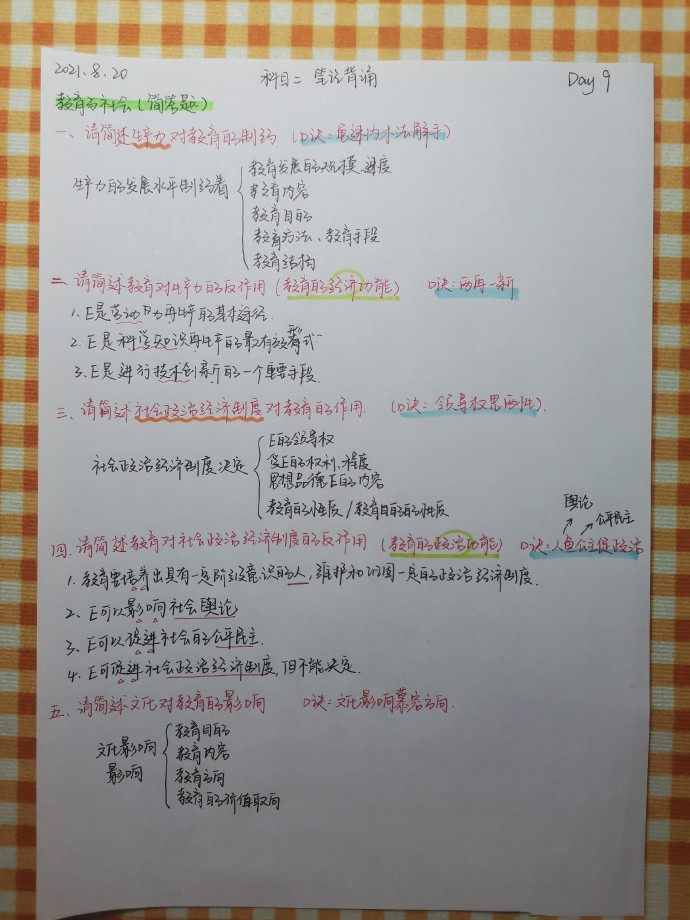 2021.8.20
科目二 笔记背诵
Day 9
教育与社会(简答题)
一、请简述生产力对教育的制约 (口诀:
生产力的发展水平制约着
教育发展的规模、速度
教育内容
教育目的
教育方法、教育手段
教育结构
二、请简述教育对生产力的反作用(教育的经济功能) 口诀:两再一新
1. E是劳动力再生产的基本途径.
2. E是科学知识再生产的最有效形式
3. E是进行技术创新的一个重要手段.
三、请简述社会政治经济制度对教育的作用. (口诀:领导权思两性).
社会政治经济制度决定
E的领导权
受E的权利、程度
思想品德E的内容
教育的性质/教育目的的性质
舆论
公平民主
四.请简述教育对社会政治经济制度的反作用 (教育的政治功能) 口诀:人鱼公主促政治
1. 教育要培养出具有一定阶级意识的人,维护和巩固一定的政治经济制度.
2、E可以影响社会舆论
3、E可以促进社会的公平民主.
4、E可促进社会政治经济制度,但不能决定.
五、请简述文化对教育的影响 口诀:文化影响慕容方向.
文化影响
影响
教育目的
教育内容
教育方向
教育的价值取向